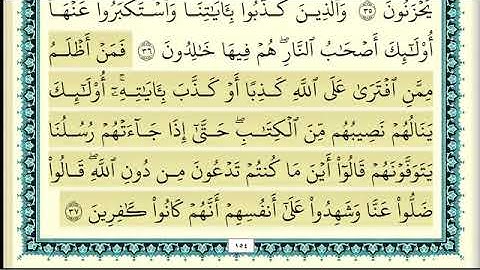 يَحْزَنُونَ ٣٥ وَالَّذِينَ كَذَّبُوا بِـَٔايَاتِنَا وَاسْتَكْبَرُوا عَنْهَا
أُولَـٰٓئِكَ أَصْحَابُ النَّارِ ۖ هُمْ فِيهَا خَالِدُونَ ٣٦ فَمَنْ أَظْلَمُ
مِمَّنِ افْتَرَىٰ عَلَى اللَّهِ كَذِبًا أَوْ كَذَّبَ بِـَٔايَاتِهِ ۚ أُولَـٰٓئِكَ
يَنَالُهُمْ نَصِيبُهُم مِّنَ الْكِتَابِ ۖ حَتَّىٰٓ إِذَا جَآءَتْهُمْ رُسُلُنَا
يَتَوَفَّوْنَهُمْ قَالُوٓا أَيْنَ مَا كُنتُمْ تَدْعُونَ مِن دُونِ اللَّهِ ۖ قَالُوا
ضَلُّوا عَنَّا وَشَهِدُوا عَلَىٰٓ أَنفُسِهِمْ أَنَّهُمْ كَانُوا كَافِرِينَ ٣٧
١٥٤